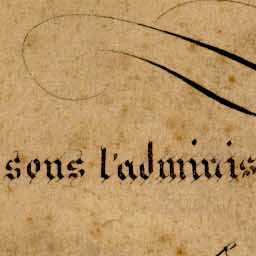 sons l'adminis